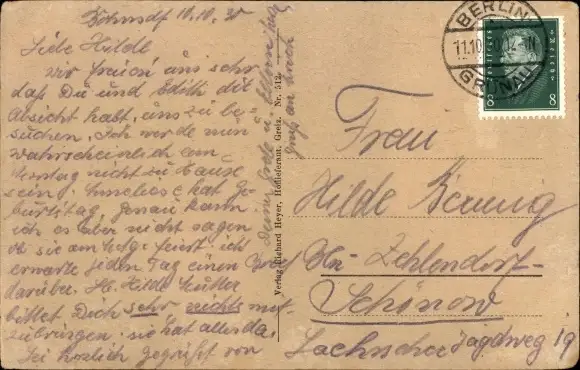 10.10.30
Liebe Hilde
wir freuen uns sehr
daß Du und Edith die
Absicht habt, uns zu be-
suchen. Ich werde nun
wahrscheinlich am
nicht zu Hause
sein. Anneliese hat Ge-
burtstag, genau kann
ich es aber nicht sagen
ob sie am feiert, ich
erwarte jeden Tag einen
darüber. Hilde
bittet Dich sehr nichts mit-
zubringen sie hat alles da.
Sei herzlich gegrüßt von
Deiner Grete u. Eltern
Gruß an
Verlag Richard Heyer, Hoflieferant, Greiz. Nr. 512
BERLIN-
11.10.
GRÜNAU
8 8
Frau
Hilde
Bln Zehlendorf-
Schönow
Jagdweg 19